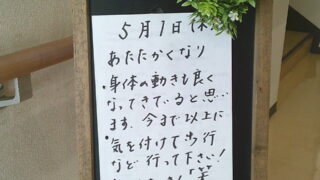 5月1日(木)
あたたかくなり
・身体の動きも良く
なってきていると思い
ます。今まで以上に
・気を付けて歩行
など行って下さい!
「笑